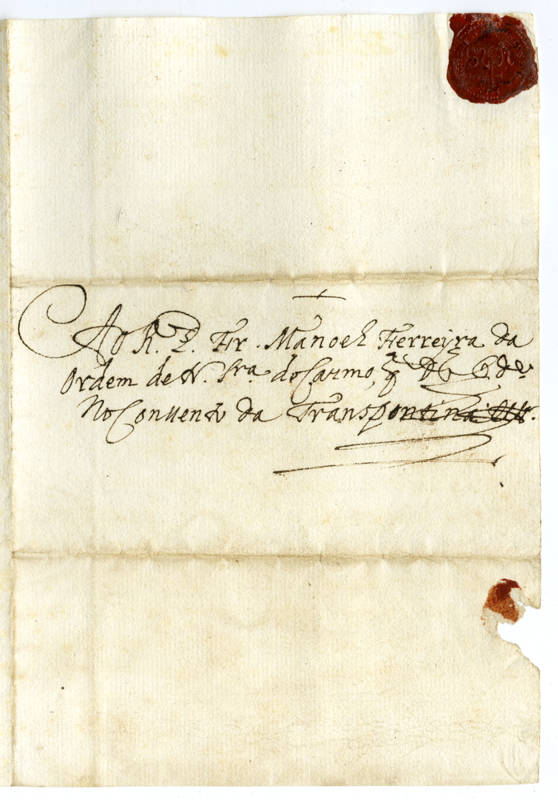 Ao R. P. Fr. Manoel Ferreyra da
Ordem de N. Sra. do Carmo, q̃ Ds G. de
No Convento da Transpontina